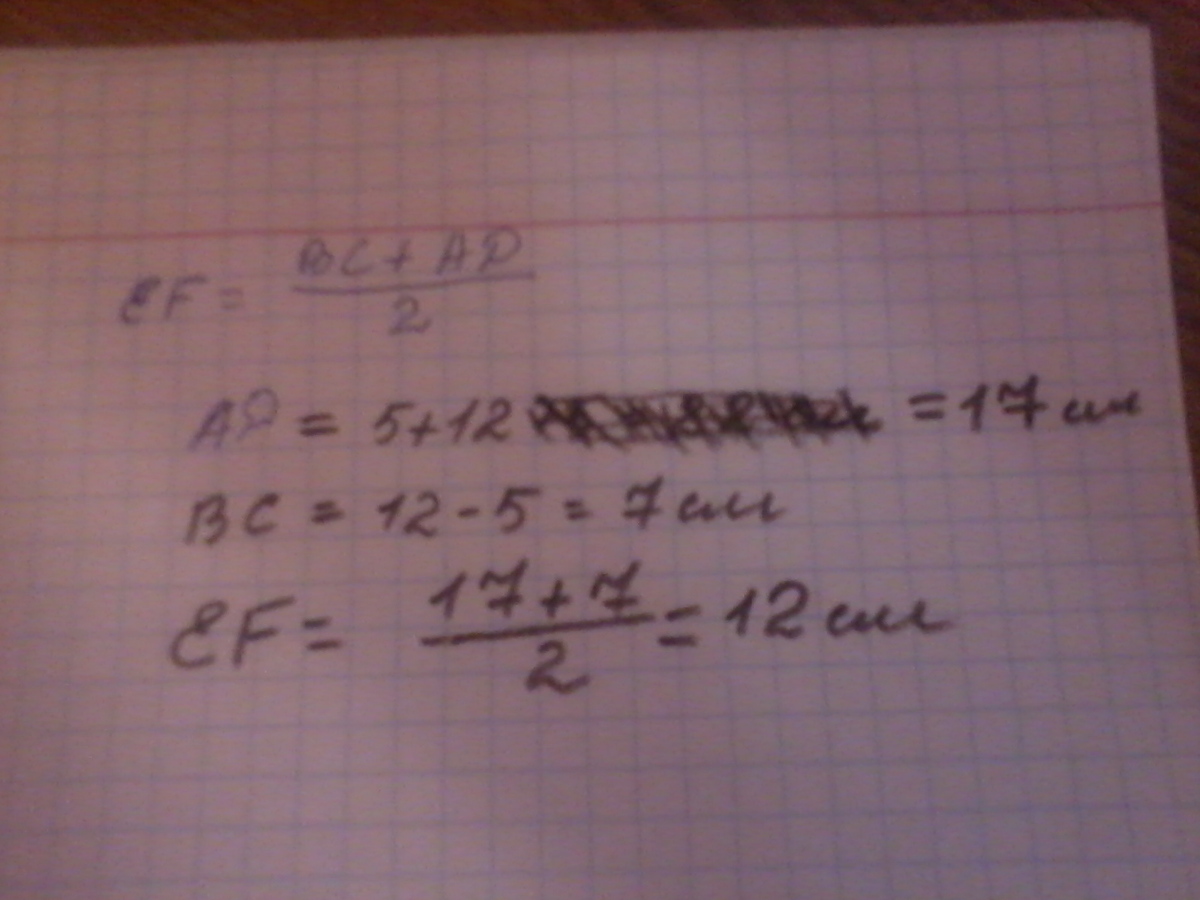 EF = (BC + AD) / 2
AD = 5+12 = 17 см
BC = 12 - 5 = 7 см
EF = (17 + 7) / 2 = 12 см